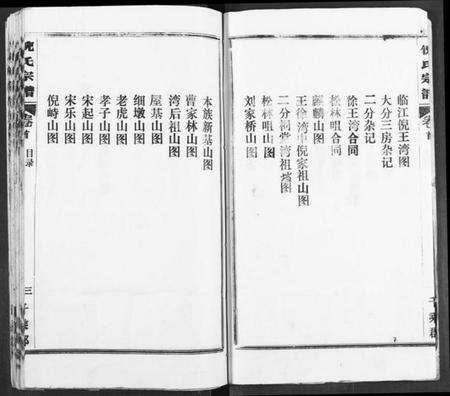 倪氏宗譜
卷首
临江倪王湾图
大分三房杂记
二分杂记
徐王湾合同
松林咀合同
麒麟山图
王徐湾中倪家祖山图
二分祠堂湾祖坟图
松林咀山图
刘家桥山图
千乘郡
本族新基山图
曹家林山图
湾后祖山图
屋基山图
细墩山图
老虎山图
孝子山图
宋起山图
宋乐山图
倪峙山图
倪氏宗譜
卷首
目录
三
千乘郡